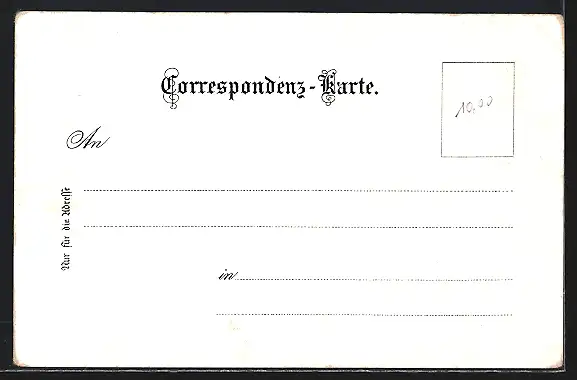 Correspondenz-Karte.
10,00
An
Nur für die Adresse
in